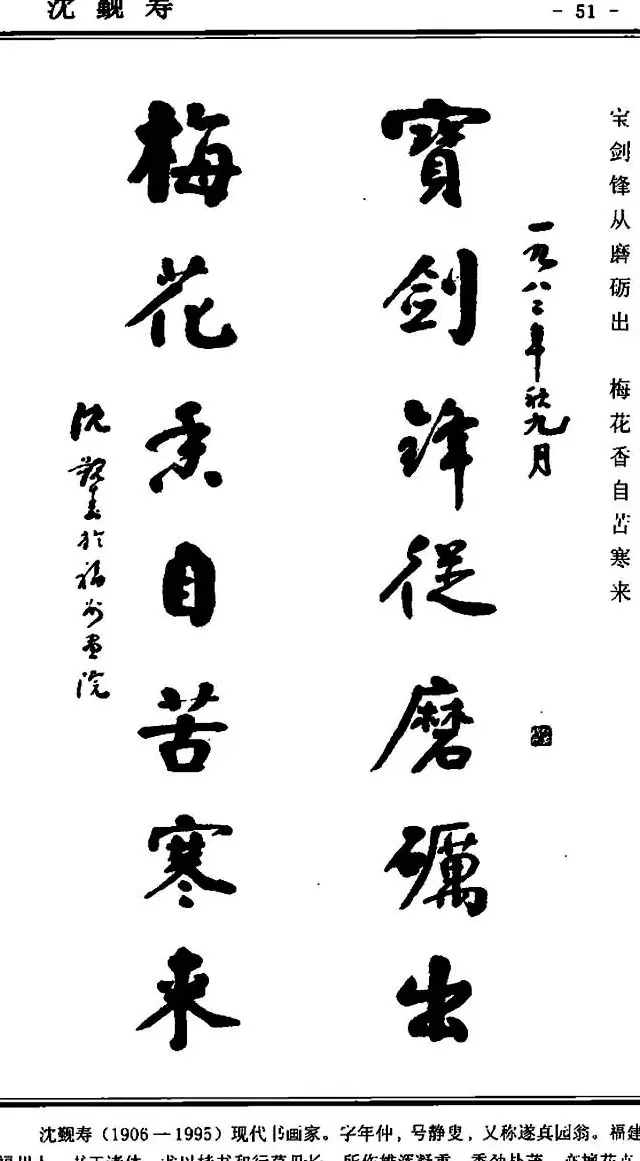 沈觐寿
- 51 -
宝剑锋从磨砺出 梅花香自苦寒来
一九八二年秋九月
寶劍鋒從磨礪出
梅花香自苦寒来
沈觐寿於福州画院
沈觐寿(1906—1995)现代书画家。字年仲,号静叟,又称遂真园翁。福建